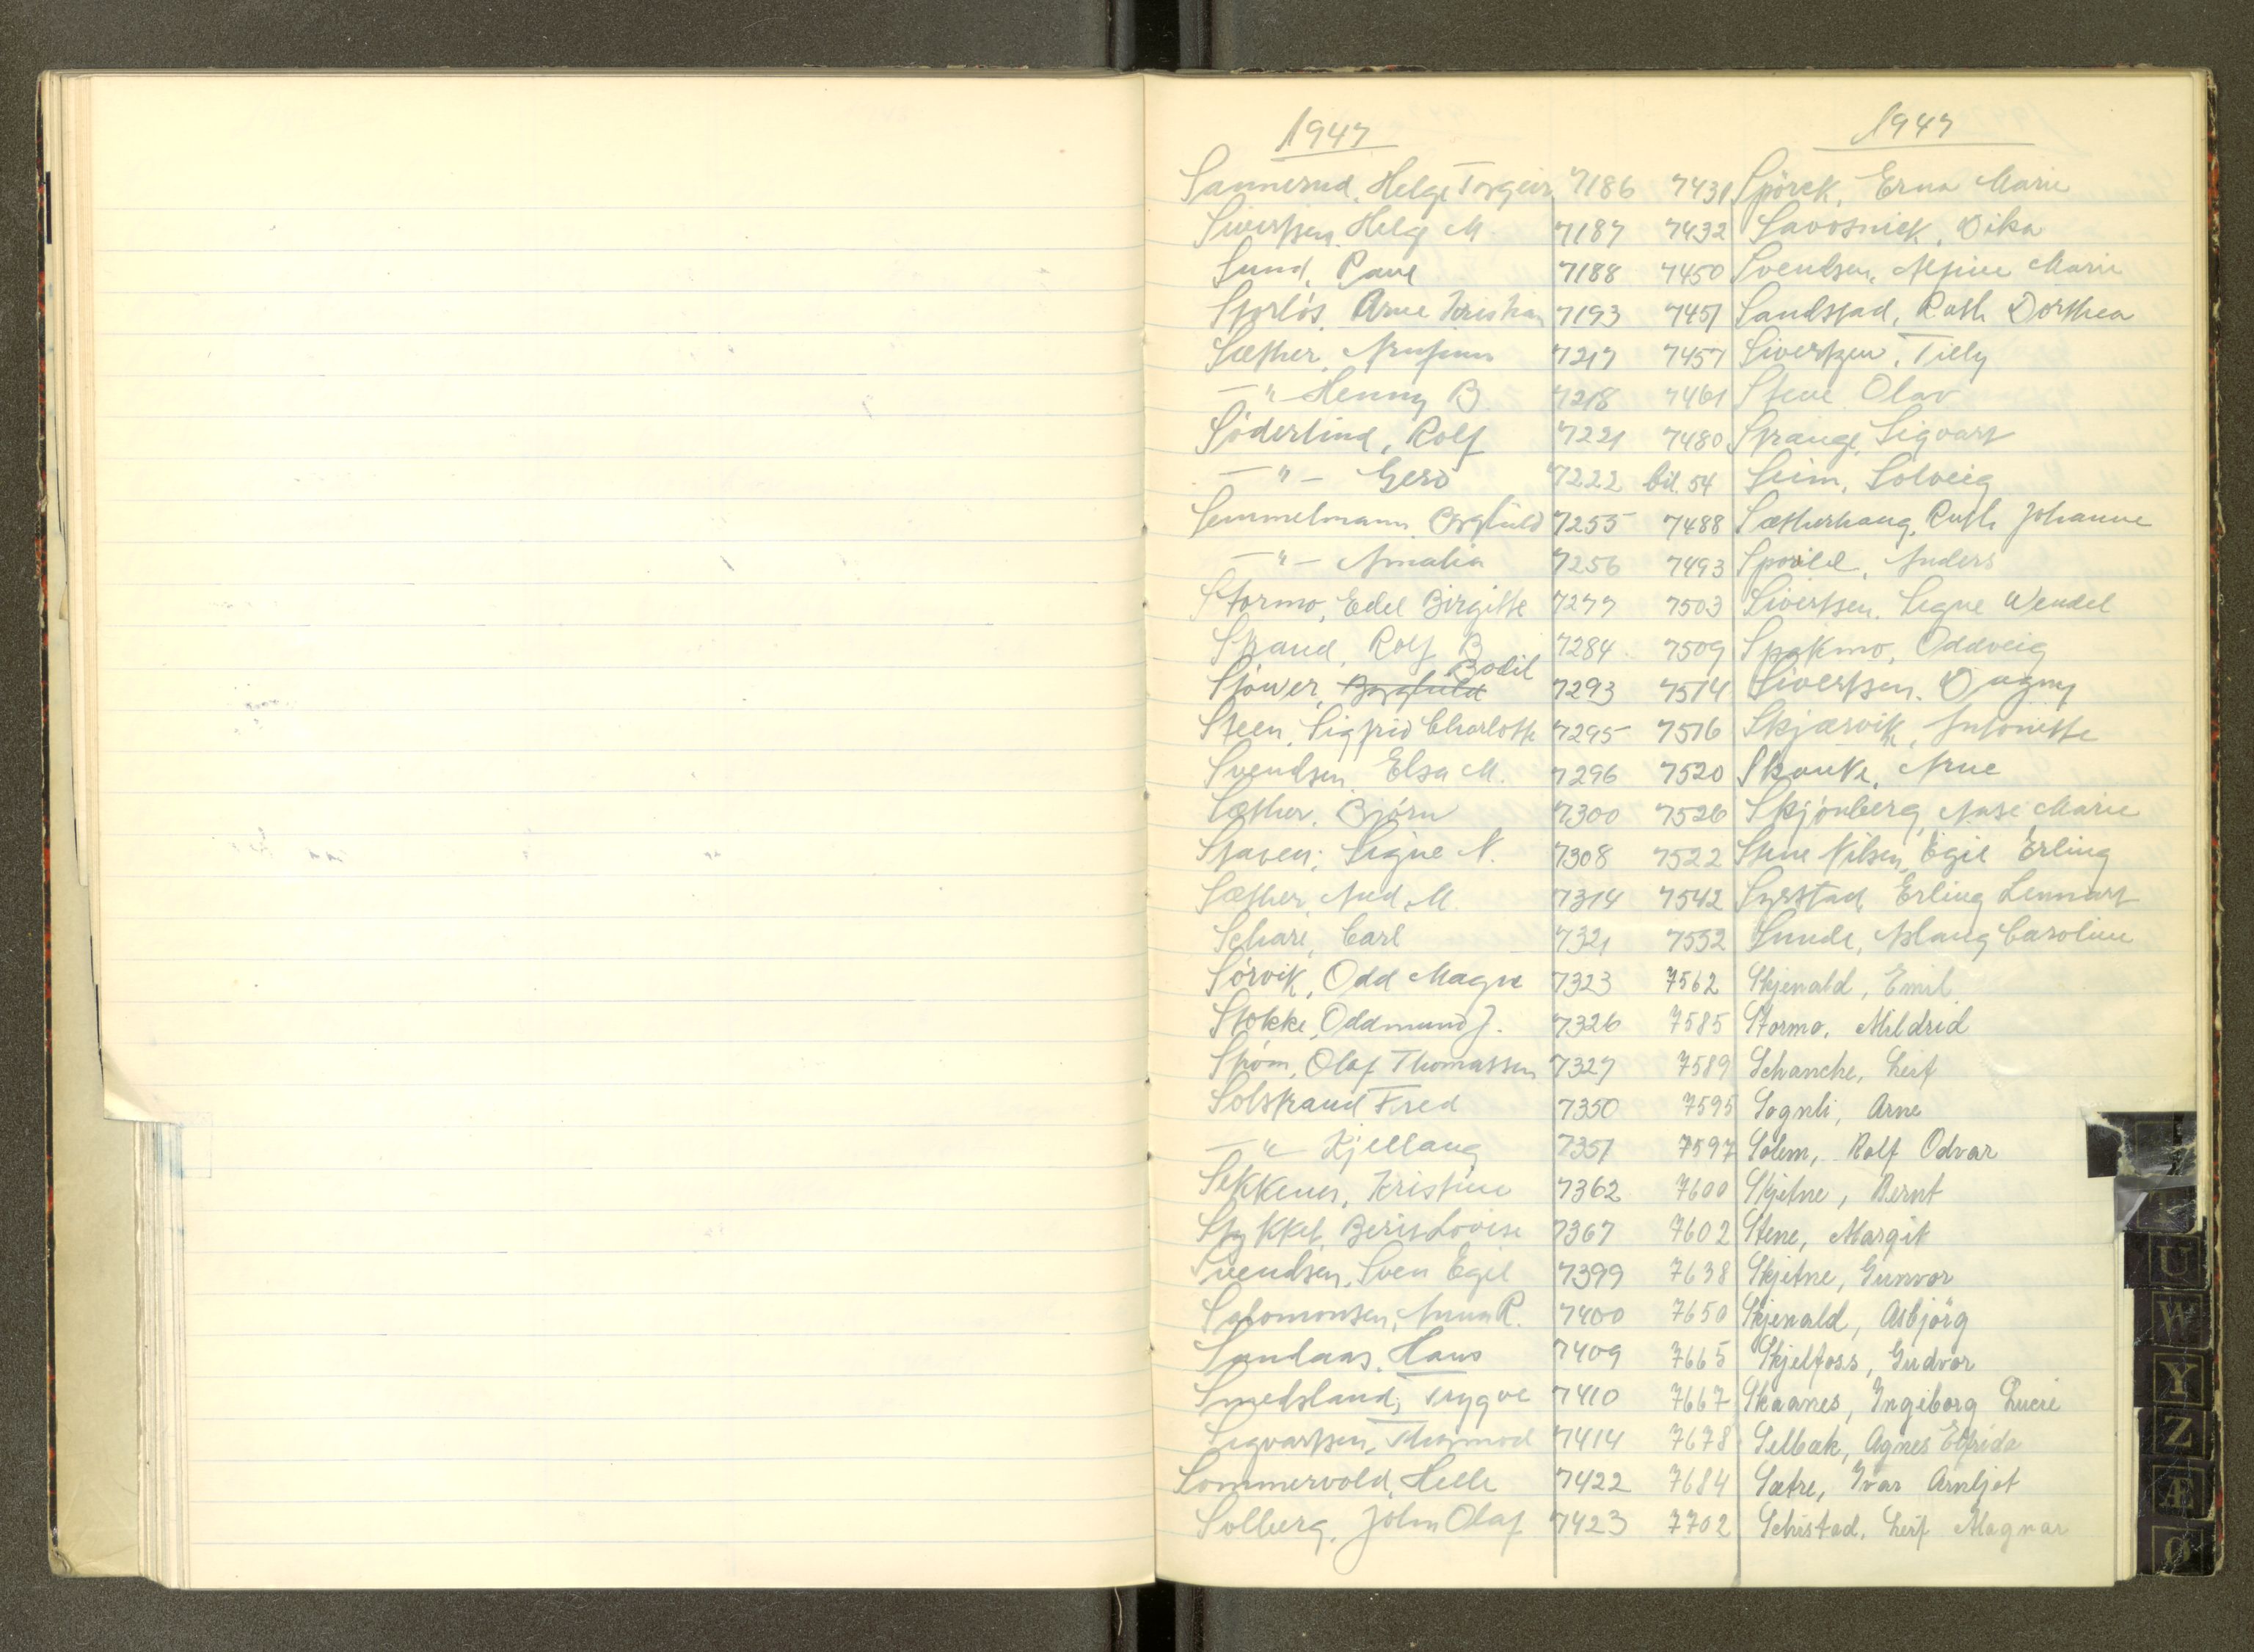 1947 1947
Sannerud, Helge Torgeir 7186 7431 Spörck, Erna Marie
Sivertsen, Helge M. 7187 7432 Savosnick, Dika
Sund, Paul 7188 7450 Svendsen, Alfine Marie
Storlös, Arne Kristian 7193 7451 Sandstad, Ruth Dorthea
Sæther, Arnfinn 7217 7457 Sivertsen, Tilly
—"— Henny B. 7218 7461 Stene Olav
Söderlind, Rolf 7221 7480 Strange, Sigvart
—"— Gerd 7222 bil. 54 Seim, Solveig
Semmelmann, Borghild 7255 7488 Sætherhaug, Ruth Johanne
—"— Amalia 7256 7493 Sporild, Anders
Stormo, Edel Birgitte 7277 7503 Sivertsen, Signe Wendel
Strand, Rolf B 7284 7509 Spakmo, Oddveig
Stöwer, Borghild Bodil 7293 7514 Sivertsen, Dagny
Steen, Sigfrid Charlotte 7295 7516 Skjærvik, Antonette
Svendsen, Elsa M. 7296 7520 Skanke, Arne
Sæther, Björn 7300 7526 Skjönberg, Aase Marie
Staven, Signe N. 7308 7522 Stene Nilsen, Egil Erling
Sæther, Aud M. 7314 7542 Syrstad, Erling Lennart
Schare, Carl 7321 7552 Sunde, Aslaug Caroline
Sörvik, Odd Magne 7323 7562 Skjenald, Emil
Stokke, Oddmund J. 7326 7585 Stormo, Mildrid
Ström, Olaf Thomassen 7327 7589 Schanche, Leif
Solstrand Fred 7350 7595 Sognli, Arne
—"— Kjellaug 7351 7597 Solem, Rolf Odvar
Sekkenes, Kristine 7362 7600 Skjetne, Bernt
Stykket, Berit Lovise 7367 7602 Stene, Margit
Svendsen, Sven Egil 7399 7638 Skjetne, Gunvor
Salomonsen, Anna R. 7400 7650 Skjenald, Asbjörg
Sandaas, Hans 7409 7665 Skjelfoss, Gudvor
Smedsland, Trygve 7410 7667 Skaanes, Ingeborg Lucie
Sigvartsen, Thormod 7414 7678 Selbæk, Agnes Elfrida
Sommervold, Helle 7422 7684 Sætre, Ivar Arnljot
Solberg, John Olaf 7423 7702 Schistad, Leif Magnar
U
W
Y
Z
Æ
Ø